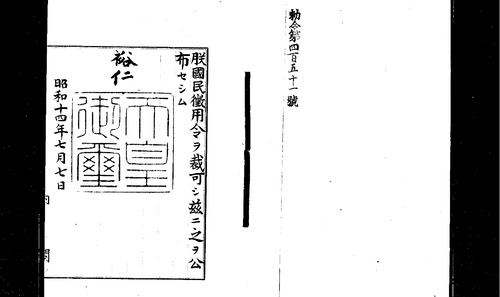 勅令第四百五十一號
朕國民徵用令ヲ裁可シ茲ニ之ヲ公
布セシム
裕仁
天皇
御璽
昭和十四年七月七日
内閣